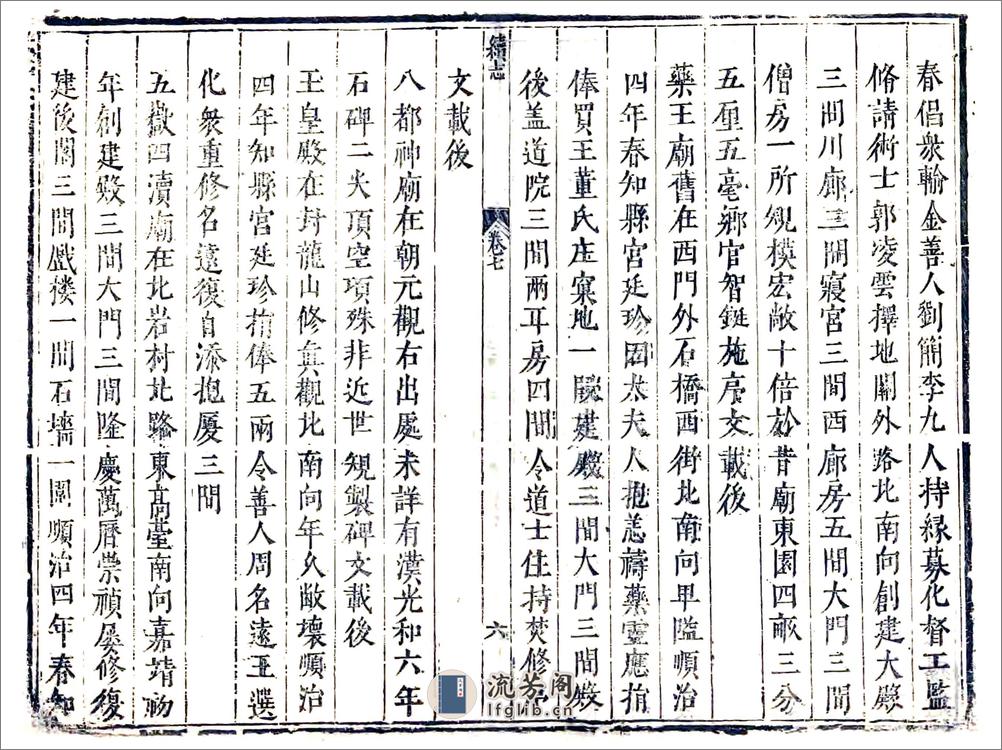 春倡衆輸金善人劉簡李九人持緣募化督工監
脩請術士郭凌雲擇地關外路北南向創建大殿
三間川廊三間寢宮三間西廊房五間大門三間
僧房一所規模宏敞十倍於昔廟東園四畝三分
五厘五毫鄉官智鋌施序文載後
藥王廟舊在西門外石橋西街北南向卑隘順治
四年春知縣宮廷珍因太夫人抱恙禱藥靈應捐
俸買王董氏庄窠地一段建殿三間大門三間殿
後盖道院三間兩耳房四間令道士住持焚修
文載後
續志
卷七
六
八都神廟在朝元觀右出處未詳有漢光和六年
石碑二尖頂空項殊非近世規製碑文載後
玉皇殿在封龍山修真觀北南向年久敝壞順治
四年知縣宮廷珍捐俸五兩令善人周名遠王選
化衆重修名遠復自添抱厦三間
五嶽四瀆廟在北岩村北路東高臺南向嘉靖初
年創建殿三間大門三間隆慶萬曆崇禎屡修復
建後閣三間戲樓一間石墻一圍順治四年春知
流芳阁
lfglib.cn